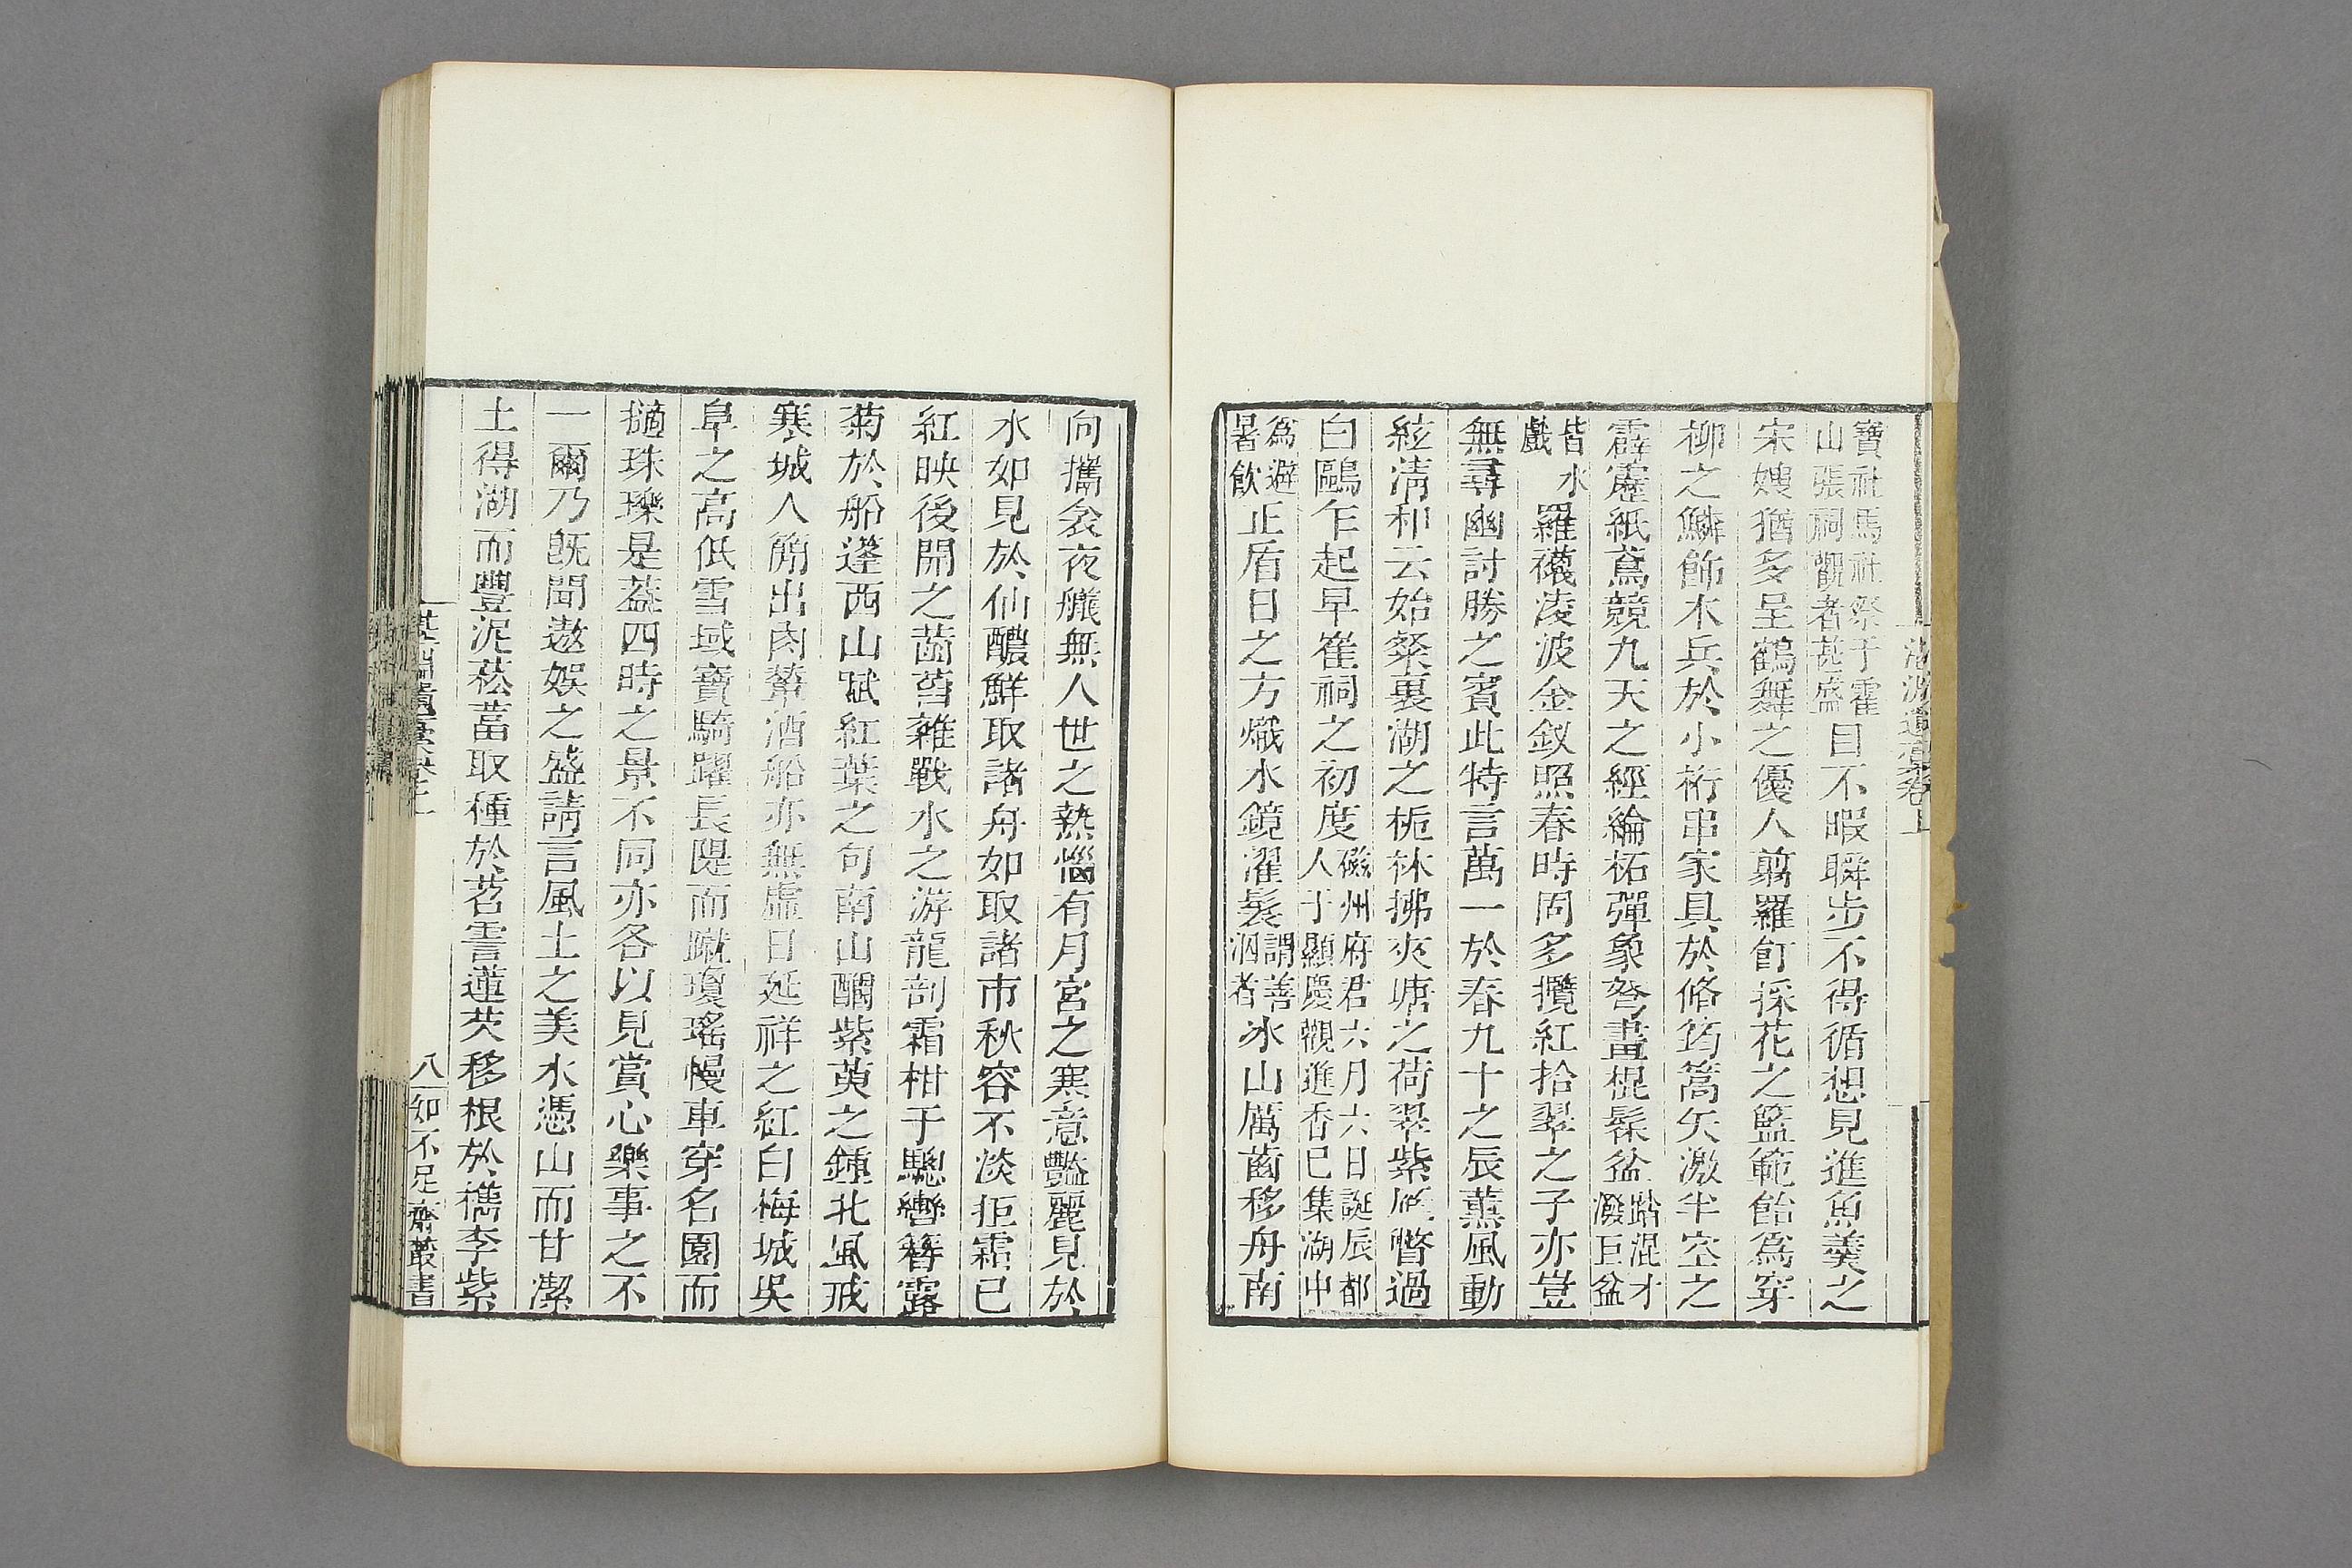 湛淵遺稾卷上
寶社馬社祭于霍山張祠觀者甚盛目不暇瞬步不得循想見進魚羹之
宋嫂猶多呈鶴舞之優人翦羅飣採花之籃範飴爲穿
柳之鱗飾木兵於小桁串家具於脩筠篙矢激半空之
霹靂紙鳶競九天之經綸柘彈象弩畫棍髹盆踏混才潑巨盆
皆水戲羅襪淩波金釵照春時固多攬紅拾翠之子亦豈
無尋幽討勝之賓此特言萬一於春九十之辰薰風動
絃淸和云始粲裏湖之梔林拂夾塘之荷翠紫騮瞥過
白鷗乍起早崔祠之初度磁州府君六月六日誕辰都人于顯慶觀進香已集湖中
爲避暑飮正盾日之方熾水鏡濯髮謂善泅者冰山厲齒移舟南
向攜衾夜艤無人世之熱惱有月宮之寒意豔麗見於
水如見於仙醲鮮取諸舟如取諸市秋容不淡拒霜已
紅映後開之菡萏雜戰水之游龍剖霜柑于驄轡簪露
菊於船篷西山賦紅葉之句南山酬紫萸之鍾北風戒
寒城人簡出肉輦酒船亦無虛日延祥之紅白梅城吳
阜之高低雪域寶騎躍長隄而蹴瓊瑤幔車穿名園而
擿珠璣是葢四時之景不同亦各以見賞心樂事之不
一爾乃旣聞遨娛之盛請言風土之美水憑山而甘潔
土得湖而豐泥菘葍取種於苕霅蓮芡移根於檇李紫
湛淵遺稾卷上
八
知不足齋叢書